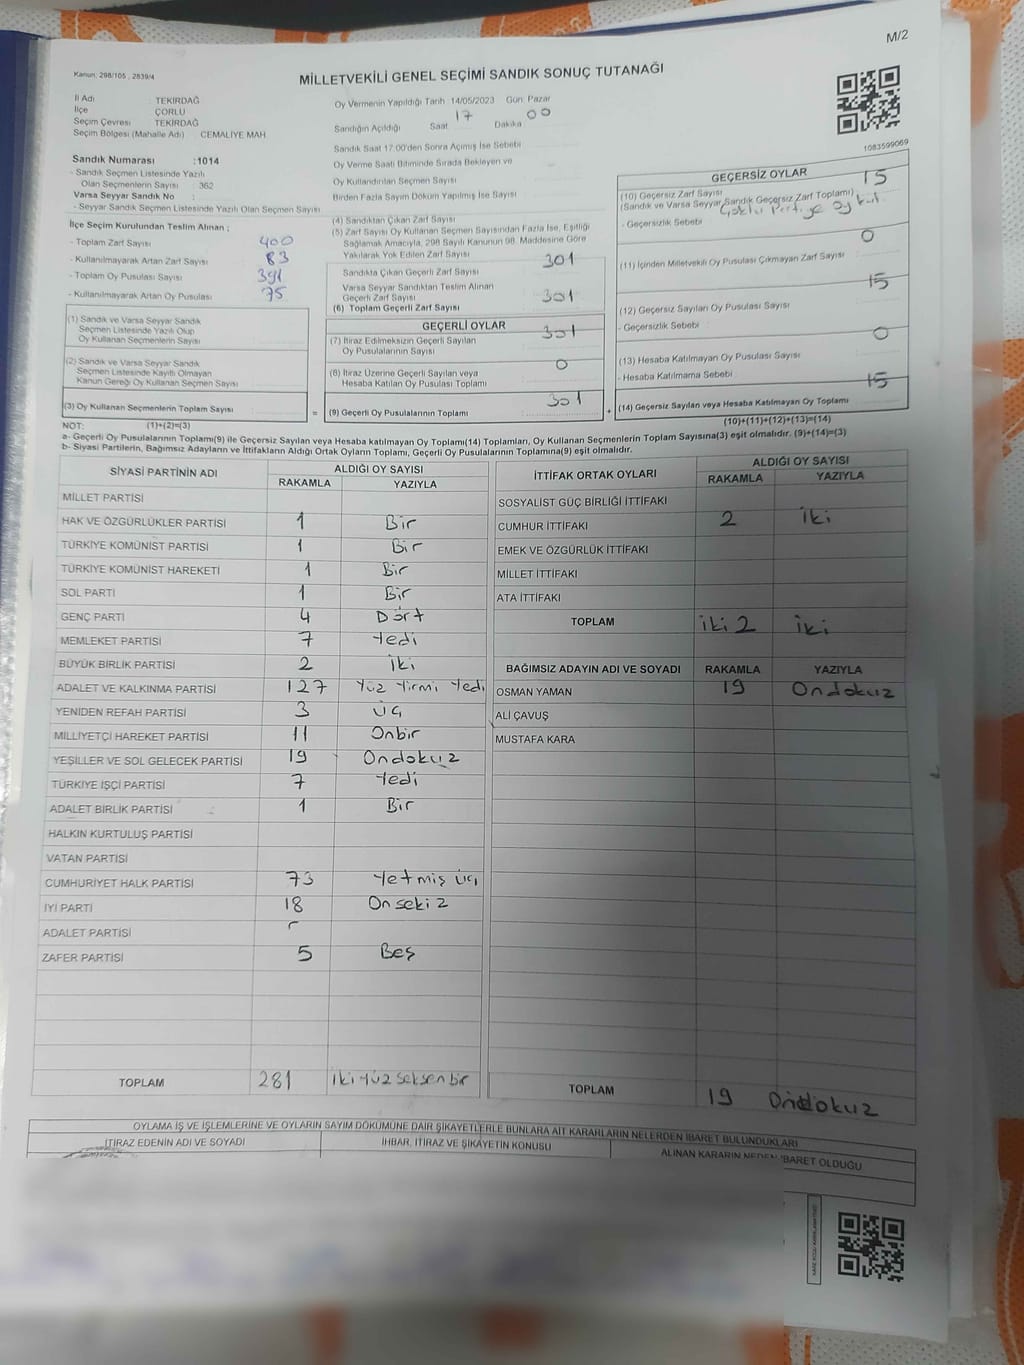 M/2
Kanun: 298/105 , 2839/4
MİLLETVEKİLİ GENEL SEÇİMİ SANDIK SONUÇ TUTANAĞI
İl Adı : TEKİRDAĞ
İlçe : ÇORLU
Seçim Çevresi : TEKİRDAĞ
Seçim Bölgesi (Mahalle Adı) CEMALİYE MAH.
Sandık Numarası :1014
- Sandık Seçmen Listesinde Yazılı
Olan Seçmenlerin Sayısı : 362
Varsa Seyyar Sandık No :
- Seyyar Sandık Seçmen Listesinde Yazılı Olan Seçmen Sayısı
İlçe Seçim Kurulundan Teslim Alınan ;
- Toplam Zarf Sayısı 400
- Kullanılmayarak Artan Zarf Sayısı 83
- Toplam Oy Pusulası Sayısı 391
- Kullanılmayarak Artan Oy Pusulası 75
(1) Sandık ve Varsa Seyyar Sandık
Seçmen Listesinde Yazılı Olup
Oy Kullanan Seçmenlerin Sayısı
(2) Sandık ve Varsa Seyyar Sandık
Seçmen Listesinde Kayıtlı Olmayan
Kanun Gereği Oy Kullanan Seçmen Sayısı
(3) Oy Kullanan Seçmenlerin Toplam Sayısı =
Oy Vermenin Yapıldığı Tarih :14/05/2023 Gün: Pazar
Sandığın Açıldığı Saat 17 Dakika 00
Sandık Saat 17:00'den Sonra Açımış İse Sebebi
Oy Verme Saati Bitiminde Sırada Bekleyen ve
Oy Kullandırılan Seçmen Sayısı
Birden Fazla Sayım Döküm Yapılmış İse Sayısı
(4) Sandıktan Çıkan Zarf Sayısı
(5) Zarf Sayısı Oy Kullanan Seçmen Sayısından Fazla İse, Eşitliği
Sağlamak Amacıyla, 298 Sayılı Kanunun 98. Maddesine Göre
Yakılarak Yok Edilen Zarf Sayısı
Sandıkta Çıkan Geçerli Zarf Sayısı 301
Varsa Seyyar Sandıktan Teslim Alınan
Geçerli Zarf Sayısı
(6) Toplam Geçerli Zarf Sayısı 301
GEÇERLİ OYLAR
(7) İtiraz Edilmeksizin Geçerli Sayılan
Oy Pusulalarının Sayısı 301
(8) İtiraz Üzerine Geçerli Sayılan veya
Hesaba Katılan Oy Pusulası Toplamı 0
(9) Geçerli Oy Pusulalarının Toplamı 301 +
1083599069
GEÇERSİZ OYLAR
(10) Geçersiz Zarf Sayısı 15
(Sandık ve Varsa Seyyar Sandık Geçersiz Zarf Toplamı)
- Geçersizlik Sebebi Partiye oy
(11) İçinden Milletvekili Oy Pusulası Çıkmayan Zarf Sayısı 0
(12) Geçersiz Sayılan Oy Pusulası Sayısı 15
- Geçersizlik Sebebi :
(13) Hesaba Katılmayan Oy Pusulası Sayısı 0
- Hesaba Katılmama Sebebi :
(14) Geçersiz Sayılan veya Hesaba Katılmayan Oy Toplamı 15
NOT: (1)+(2)=(3) (10)+(11)+(12)+(13)=(14)
a- Geçerli Oy Pusulalarının Toplamı(9) ile Geçersiz Sayılan veya Hesaba katılmayan Oy Toplamı(14) Toplamları, Oy Kullanan Seçmenlerin Toplam Sayısına(3) eşit olmalıdır. (9)+(14)=(3)
b- Siyasi Partilerin, Bağımsız Adayların ve İttifakların Aldığı Ortak Oyların Toplamı, Geçerli Oy Pusulalarının Toplamına(9) eşit olmalıdır.
SİYASİ PARTİNİN ADI ALDIĞI OY SAYISI
RAKAMLA YAZIYLA
MİLLET PARTİSİ
HAK VE ÖZGÜRLÜKLER PARTİSİ 1 Bir
TÜRKİYE KOMÜNİST PARTİSİ 1 Bir
TÜRKİYE KOMÜNİST HAREKETİ 1 Bir
SOL PARTİ 1 Bir
GENÇ PARTİ 4 Dört
MEMLEKET PARTİSİ 7 Yedi
BÜYÜK BİRLİK PARTİSİ 2 İki
ADALET VE KALKINMA PARTİSİ 127 Yüz Yirmi Yedi
YENİDEN REFAH PARTİSİ 3 Üç
MİLLİYETÇİ HAREKET PARTİSİ 11 Onbir
YEŞİLLER VE SOL GELECEK PARTİSİ 19 Ondokuz
TÜRKİYE İŞÇİ PARTİSİ 7 Yedi
ADALET BİRLİK PARTİSİ 1 Bir
HALKIN KURTULUŞ PARTİSİ
VATAN PARTİSİ
CUMHURİYET HALK PARTİSİ 73 Yetmiş üç
İYİ PARTİ 18 On sekiz
ADALET PARTİSİ
ZAFER PARTİSİ 5 Beş
TOPLAM 281 İki Yüz seksen bir
İTTİFAK ORTAK OYLARI ALDIĞI OY SAYISI
RAKAMLA YAZIYLA
SOSYALİST GÜÇ BİRLİĞİ İTTİFAKI
CUMHUR İTTİFAKI 2 İki
EMEK VE ÖZGÜRLÜK İTTİFAKI
MİLLET İTTİFAKI
ATA İTTİFAKI
TOPLAM iki 2 iki
BAĞIMSIZ ADAYIN ADI VE SOYADI RAKAMLA YAZIYLA
OSMAN YAMAN 19 Ondokuz
ALİ ÇAVUŞ
MUSTAFA KARA
TOPLAM 19 Ondokuz
OYLAMA İŞ VE İŞLEMLERİNE VE OYLARIN SAYIM DÖKÜMÜNE DAİR ŞİKAYETLERLE BUNLARA AİT KARARLARIN NELERDEN İBARET BULUNDUKLARI
İTİRAZ EDENİN ADI VE SOYADI İHBAR, İTİRAZ VE ŞİKAYETİN KONUSU ALINAN KARARIN NEDEN İBARET OLDUĞU